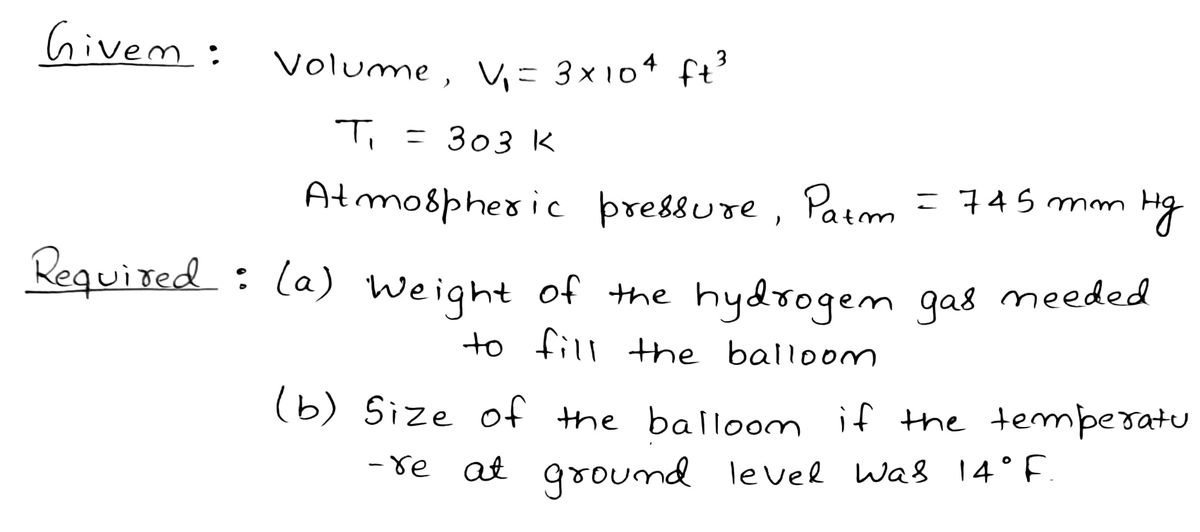 Given : Volume, V₁ = 3×10⁴ ft³
T₁ = 303 K
Atmospheric pressure, Patm = 745 mm Hg
Required : (a) Weight of the hydrogen gas needed
to fill the balloon
(b) Size of the balloon if the temperatu
-re at ground level was 14°F.